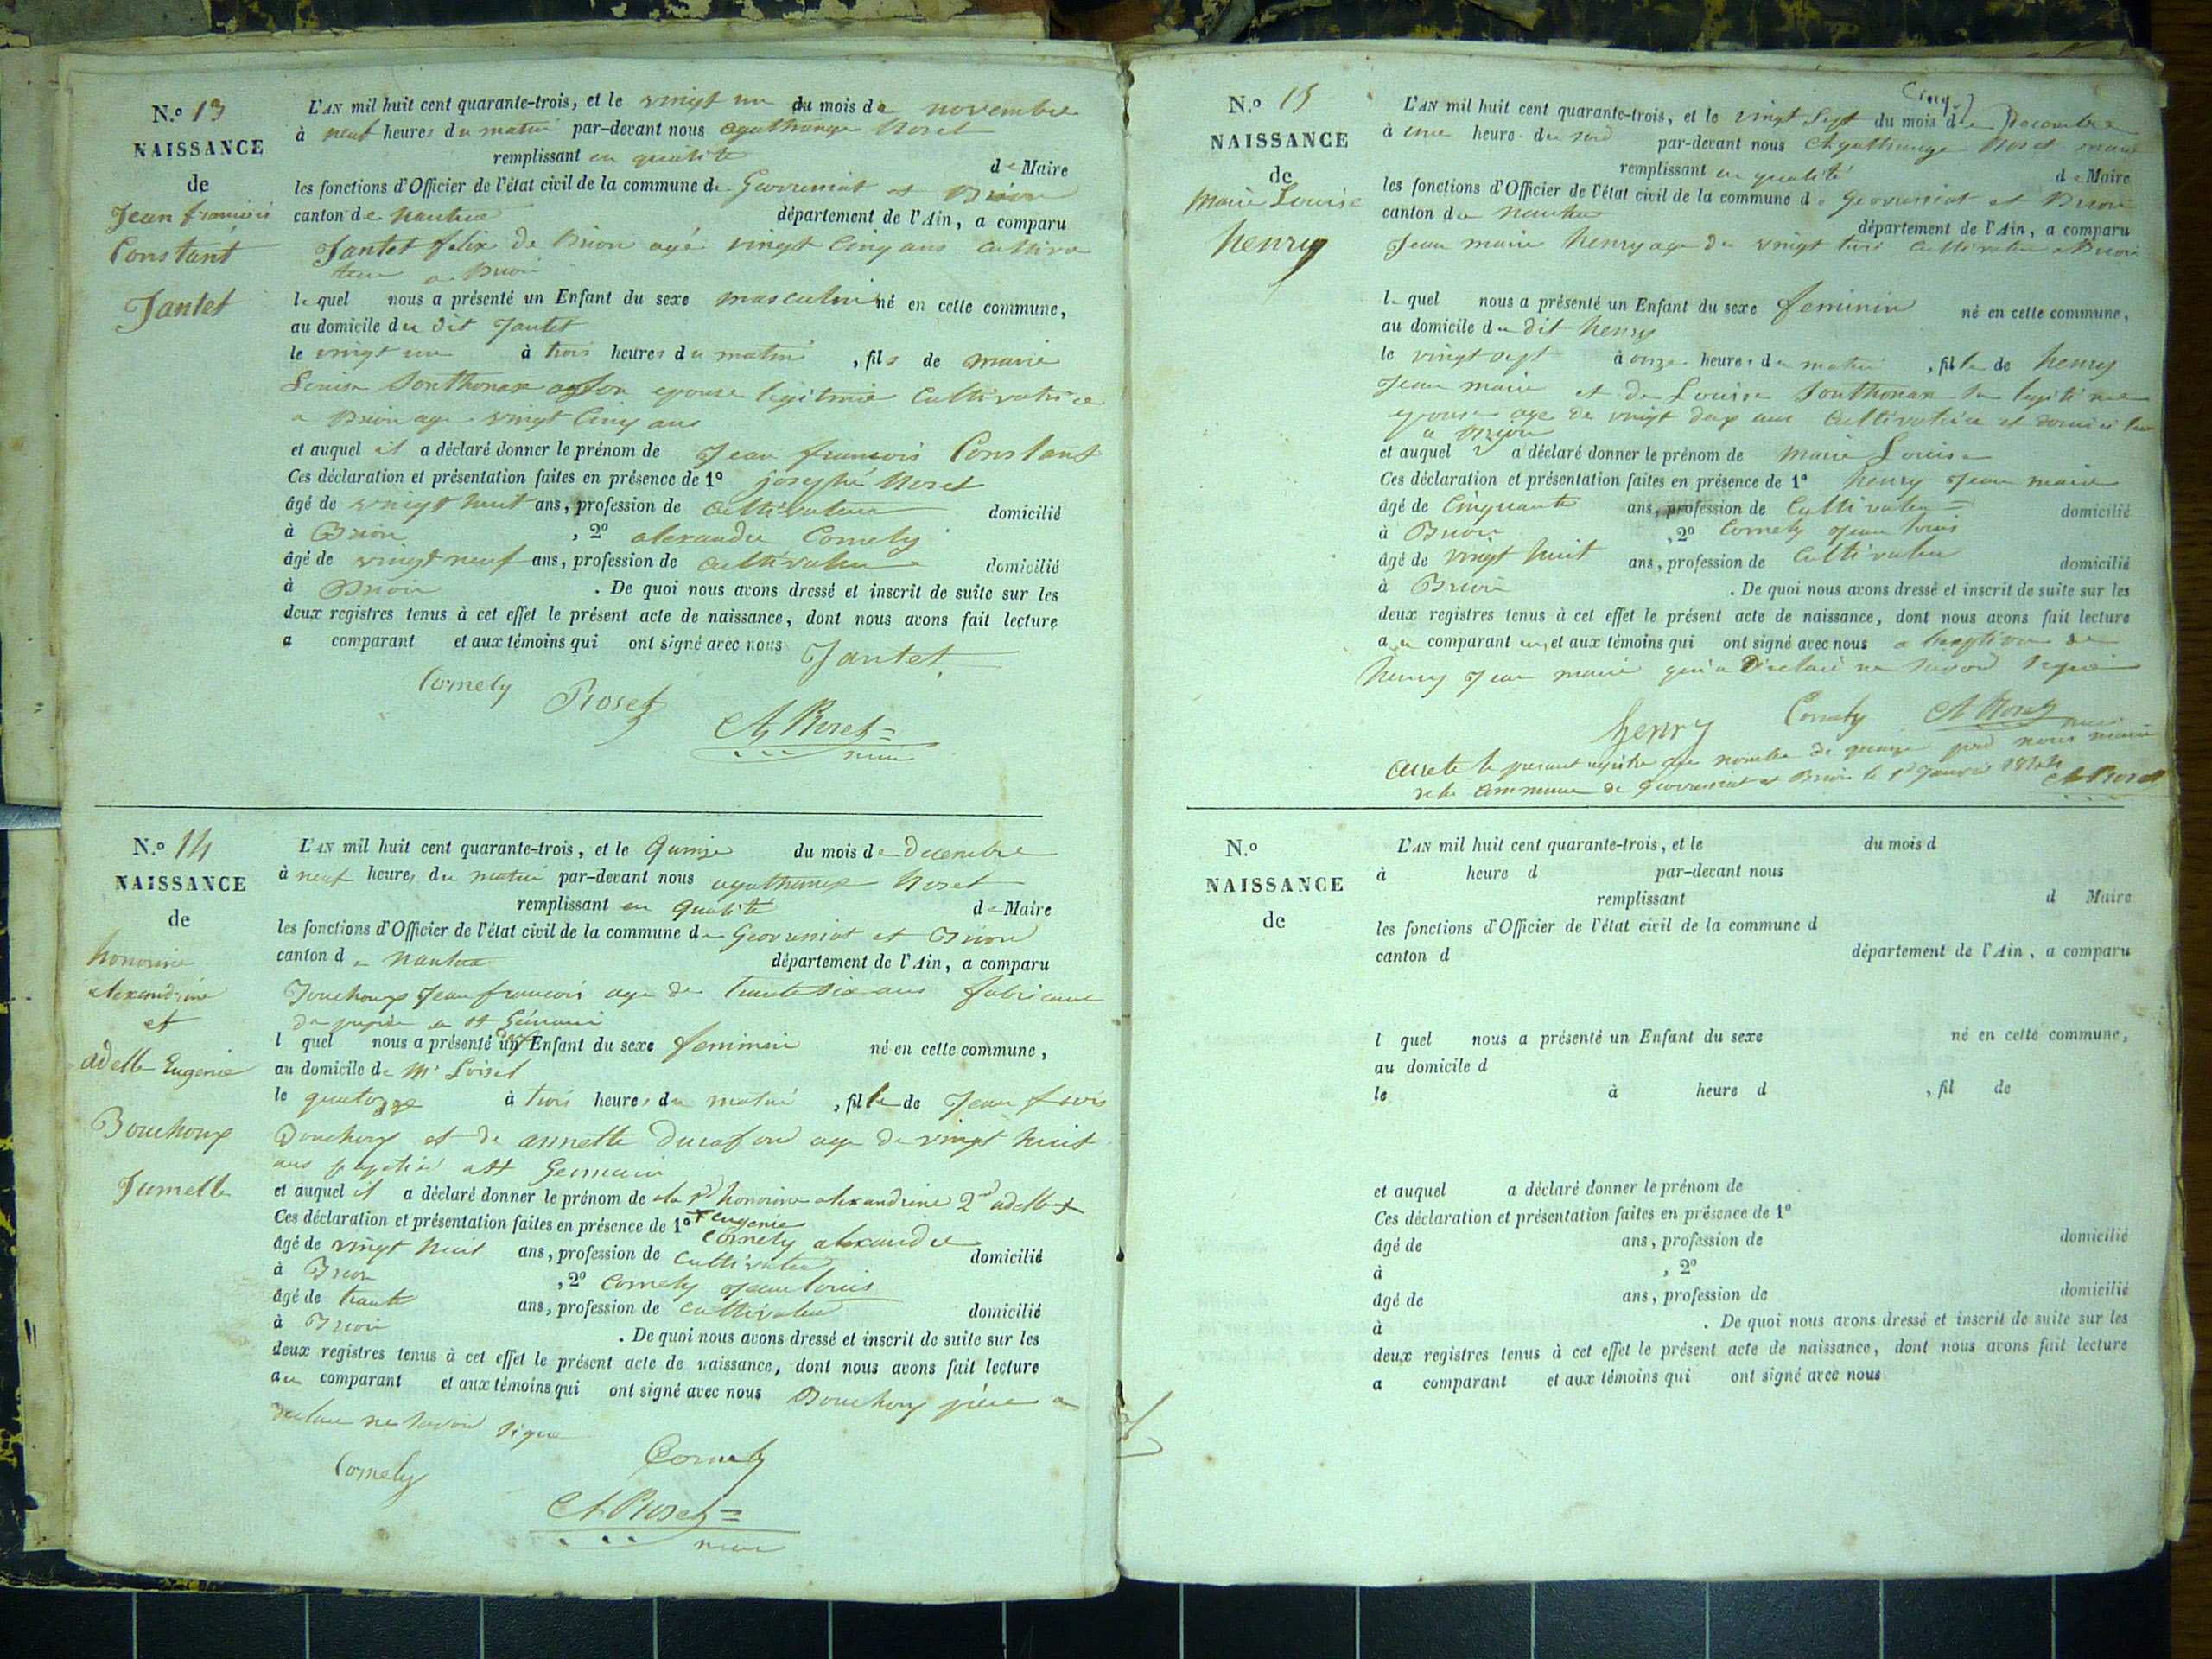 N.º 13
NAISSANCE
de
Jean francois
Constant
Jantet
L'AN mil huit cent quarante-trois, et le vingt un du mois de novembre
à neuf heures du matin par-devant nous agathange Roset
remplissant en qualité de Maire
les fonctions d'Officier de l'état civil de la commune de Geovressiat et Brion
canton de nantua département de l'Ain, a comparu
Jantet felix de Brion agé vingt Cinq ans Cultiva
teur a Brion
le quel nous a présenté un Enfant du sexe masculin né en cette commune,
au domicile du dit Jantet
le vingt un à trois heures du matin, fils de marie
Louise Sonthonax son epouse legitime Cultivatrice
a Brion age vingt Cinq ans
et auquel il a déclaré donner le prénom de Jean francois Constant
Ces déclaration et présentation faites en présence de 1º josephé Roset
âgé de vingt huit ans, profession de Cultivateur domicilié
à Brion, 2º alexandre Cornely
âgé de vingt neuf ans, profession de cultivateur domicilié
à Brion. De quoi nous avons dressé et inscrit de suite sur les
deux registres tenus à cet effet le présent acte de naissance, dont nous avons fait lecture
a comparant et aux témoins qui ont signé avec nous Jantet
Cornely Roset
A Roset
maire
N.º 14
NAISSANCE
de
honorine
alexandrine
et
adelle Eugenie
Bouchoux
Jumelle
L'AN mil huit cent quarante-trois, et le Quinze du mois de Decembre
à neuf heures du matin par-devant nous agathange Roset
remplissant en qualité de Maire
les fonctions d'Officier de l'état civil de la commune de Geovressiat et Brion
canton de nantua département de l'Ain, a comparu
Bouchoux Jean francois age de trente six ans fabricant
de papier a St Germain
l quel nous a présenté un deux Enfant du sexe feminin né en cette commune,
au domicile de Mr Loisel
le quatozze à trois heures du matin, fille de Jean fcois
Bouchoux et de annette age de vingt huit
ans a St Germain
et auquel il a déclaré donner le prénom de a la 1re honorine alexandrine 2nd adelle +
Ces déclaration et présentation faites en présence de 1º + eugenie
Cornely alexandre
âgé de vingt huit ans, profession de Cultivateur domicilié
à Brion, 2º Cornely Jean louis
âgé de trente ans, profession de cultivateur domicilié
à Brion. De quoi nous avons dressé et inscrit de suite sur les
deux registres tenus à cet effet le présent acte de naissance, dont nous avons fait lecture
au comparant et aux témoins qui ont signé avec nous Bouchoux père a
declare ne savoir signe
Cornely Cornely
A Roset
maire
N.º 15
NAISSANCE
de
marie Louise
henry
L'AN mil huit cent quarante-trois, et le vingt Sept du mois de Decembre
à une heure du soir par-devant nous Agathange Roset maire
remplissant en qualité de Maire
les fonctions d'Officier de l'état civil de la commune de Geovressiat et Brion
canton de nantua département de l'Ain, a comparu
Jean marie henry age de vingt trois Cultivateur a Brion
le quel nous a présenté un Enfant du sexe feminin né en cette commune,
au domicile du dit henry
le vingt sept à onze heures du matin, fille de henry
Jean marie et de Louise Sonthonax sa legitime
epouse age de vingt deux ans Cultivatrice et
a Brion
et auquel a déclaré donner le prénom de marie Louise
Ces déclaration et présentation faites en présence de 1º henry Jean marie
âgé de Cinquante ans, profession de Cultivateur domicilié
à Brion, 2º Cornely Jean louis
âgé de vingt huit ans, profession de Cultivateur domicilié
à Brion. De quoi nous avons dressé et inscrit de suite sur les
deux registres tenus à cet effet le présent acte de naissance, dont nous avons fait lecture
au comparant et aux témoins qui ont signé avec nous a de
henry Jean marie qui a déclaré ne savoir signé
henry Cornely A Roset
arrete le present registre au nombre de quinze par nous maire
de la Commune de Geovressiat et Brion le 1er Janvier 1844
A Roset
N.º
NAISSANCE
de
L'AN mil huit cent quarante-trois, et le du mois d
à heure d par-devant nous
remplissant d Maire
les fonctions d'Officier de l'état civil de la commune d
canton d département de l'Ain, a comparu
l quel nous a présenté un Enfant du sexe né en cette commune,
au domicile d
le à heure d, fil de
et auquel a déclaré donner le prénom de
Ces déclaration et présentation faites en présence de 1º
âgé de ans, profession de domicilié
à, 2º
âgé de ans, profession de domicilié
à. De quoi nous avons dressé et inscrit de suite sur les
deux registres tenus à cet effet le présent acte de naissance, dont nous avons fait lecture
a comparant et aux témoins qui ont signé avec nous